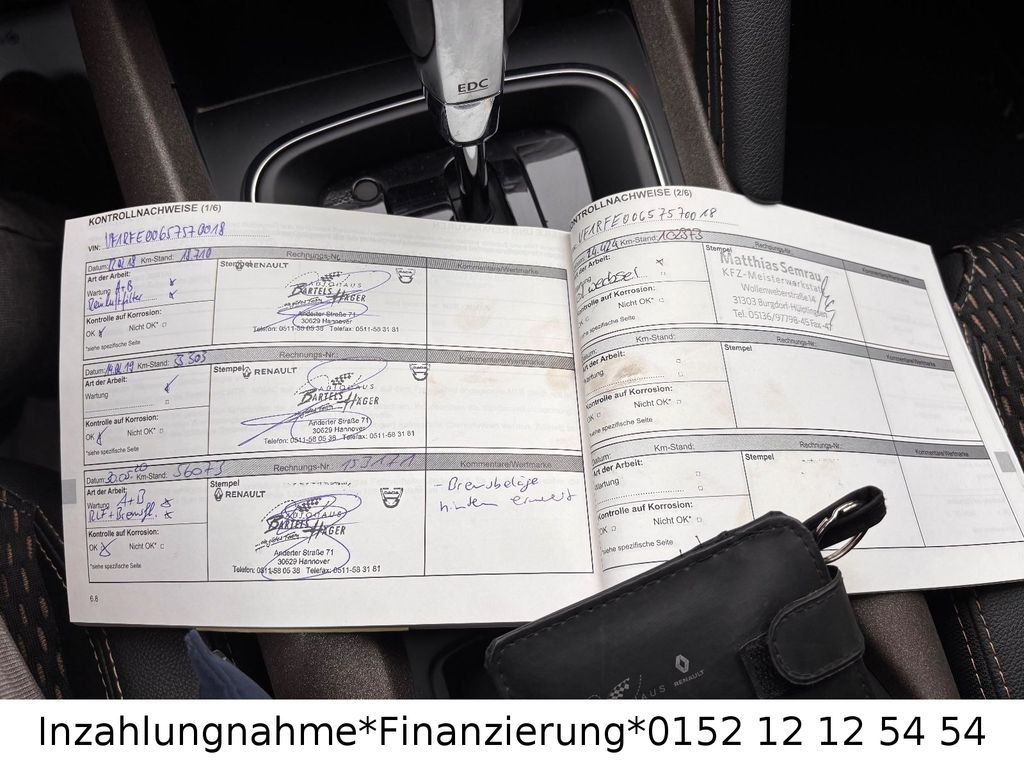 EDC
KONTROLLNACHWEISE (1/6)
VIN: VF1RFE00657570018
Datum: Km-Stand: 18.710 Rechnungs-Nr.
Art der Arbeit:
Wartung A+B
Kontrolle auf Korrosion:
OK Nicht OK*
*siehe spezifische Seite
Stempel RENAULT
AUTOHAUS
BARTELS HÄGER
Anderter Straße 71
30629 Hannover
Telefon: 0511-58 05 38 Telefax: 0511-58 31 81
DACIA
Kommentare/Wertmarke
Datum: Km-Stand: Rechnungs-Nr.:
Art der Arbeit:
Wartung
Kontrolle auf Korrosion:
OK Nicht OK*
*siehe spezifische Seite
Stempel RENAULT
AUTOHAUS
BARTELS HÄGER
Anderter Straße 71
30629 Hannover
Telefon: 0511-58 05 38 Telefax: 0511-58 31 81
Kommentare/Wertmarke
Datum: Km-Stand: 56073 Rechnungs-Nr.: 153171
Art der Arbeit:
Wartung A+B
Kontrolle auf Korrosion:
OK Nicht OK*
*siehe spezifische Seite
Stempel
RENAULT
AUTOHAUS
BARTELS HÄGER
Anderter Straße 71
30629 Hannover
Telefon: 0511-58 05 38 Telefax: 0511-58 31 81
DACIA
Kommentare/Wertmarke
- Bremsbeläge
hinten erneuert
6.8
KONTROLLNACHWEISE (2/6)
VF1RFE00657570018
Km-Stand: Rechnungs-Nr.
Stempel
Matthias Semrau
KFZ-Meisterwerkstatt
Wollenweberstraße 14
31303 Burgdorf-Hülptingsen
Tel. 05136/97798-45 Fax -47
Kontrolle auf Korrosion:
OK Nicht OK*
*siehe spezifische Seite
Datum: Km-Stand: Rechnungs-Nr.:
Art der Arbeit:
Wartung
Kontrolle auf Korrosion:
OK Nicht OK*
*siehe spezifische Seite
Stempel
Kommentare/Wertmarke
Datum: Km-Stand: Rechnungs-Nr.:
Art der Arbeit:
Wartung
Kontrolle auf Korrosion:
OK Nicht OK*
*siehe spezifische Seite
Stempel
Kommentare/Wertmarke
RENAULT
Inzahlungnahme*Finanzierung*0152 12 12 54 54